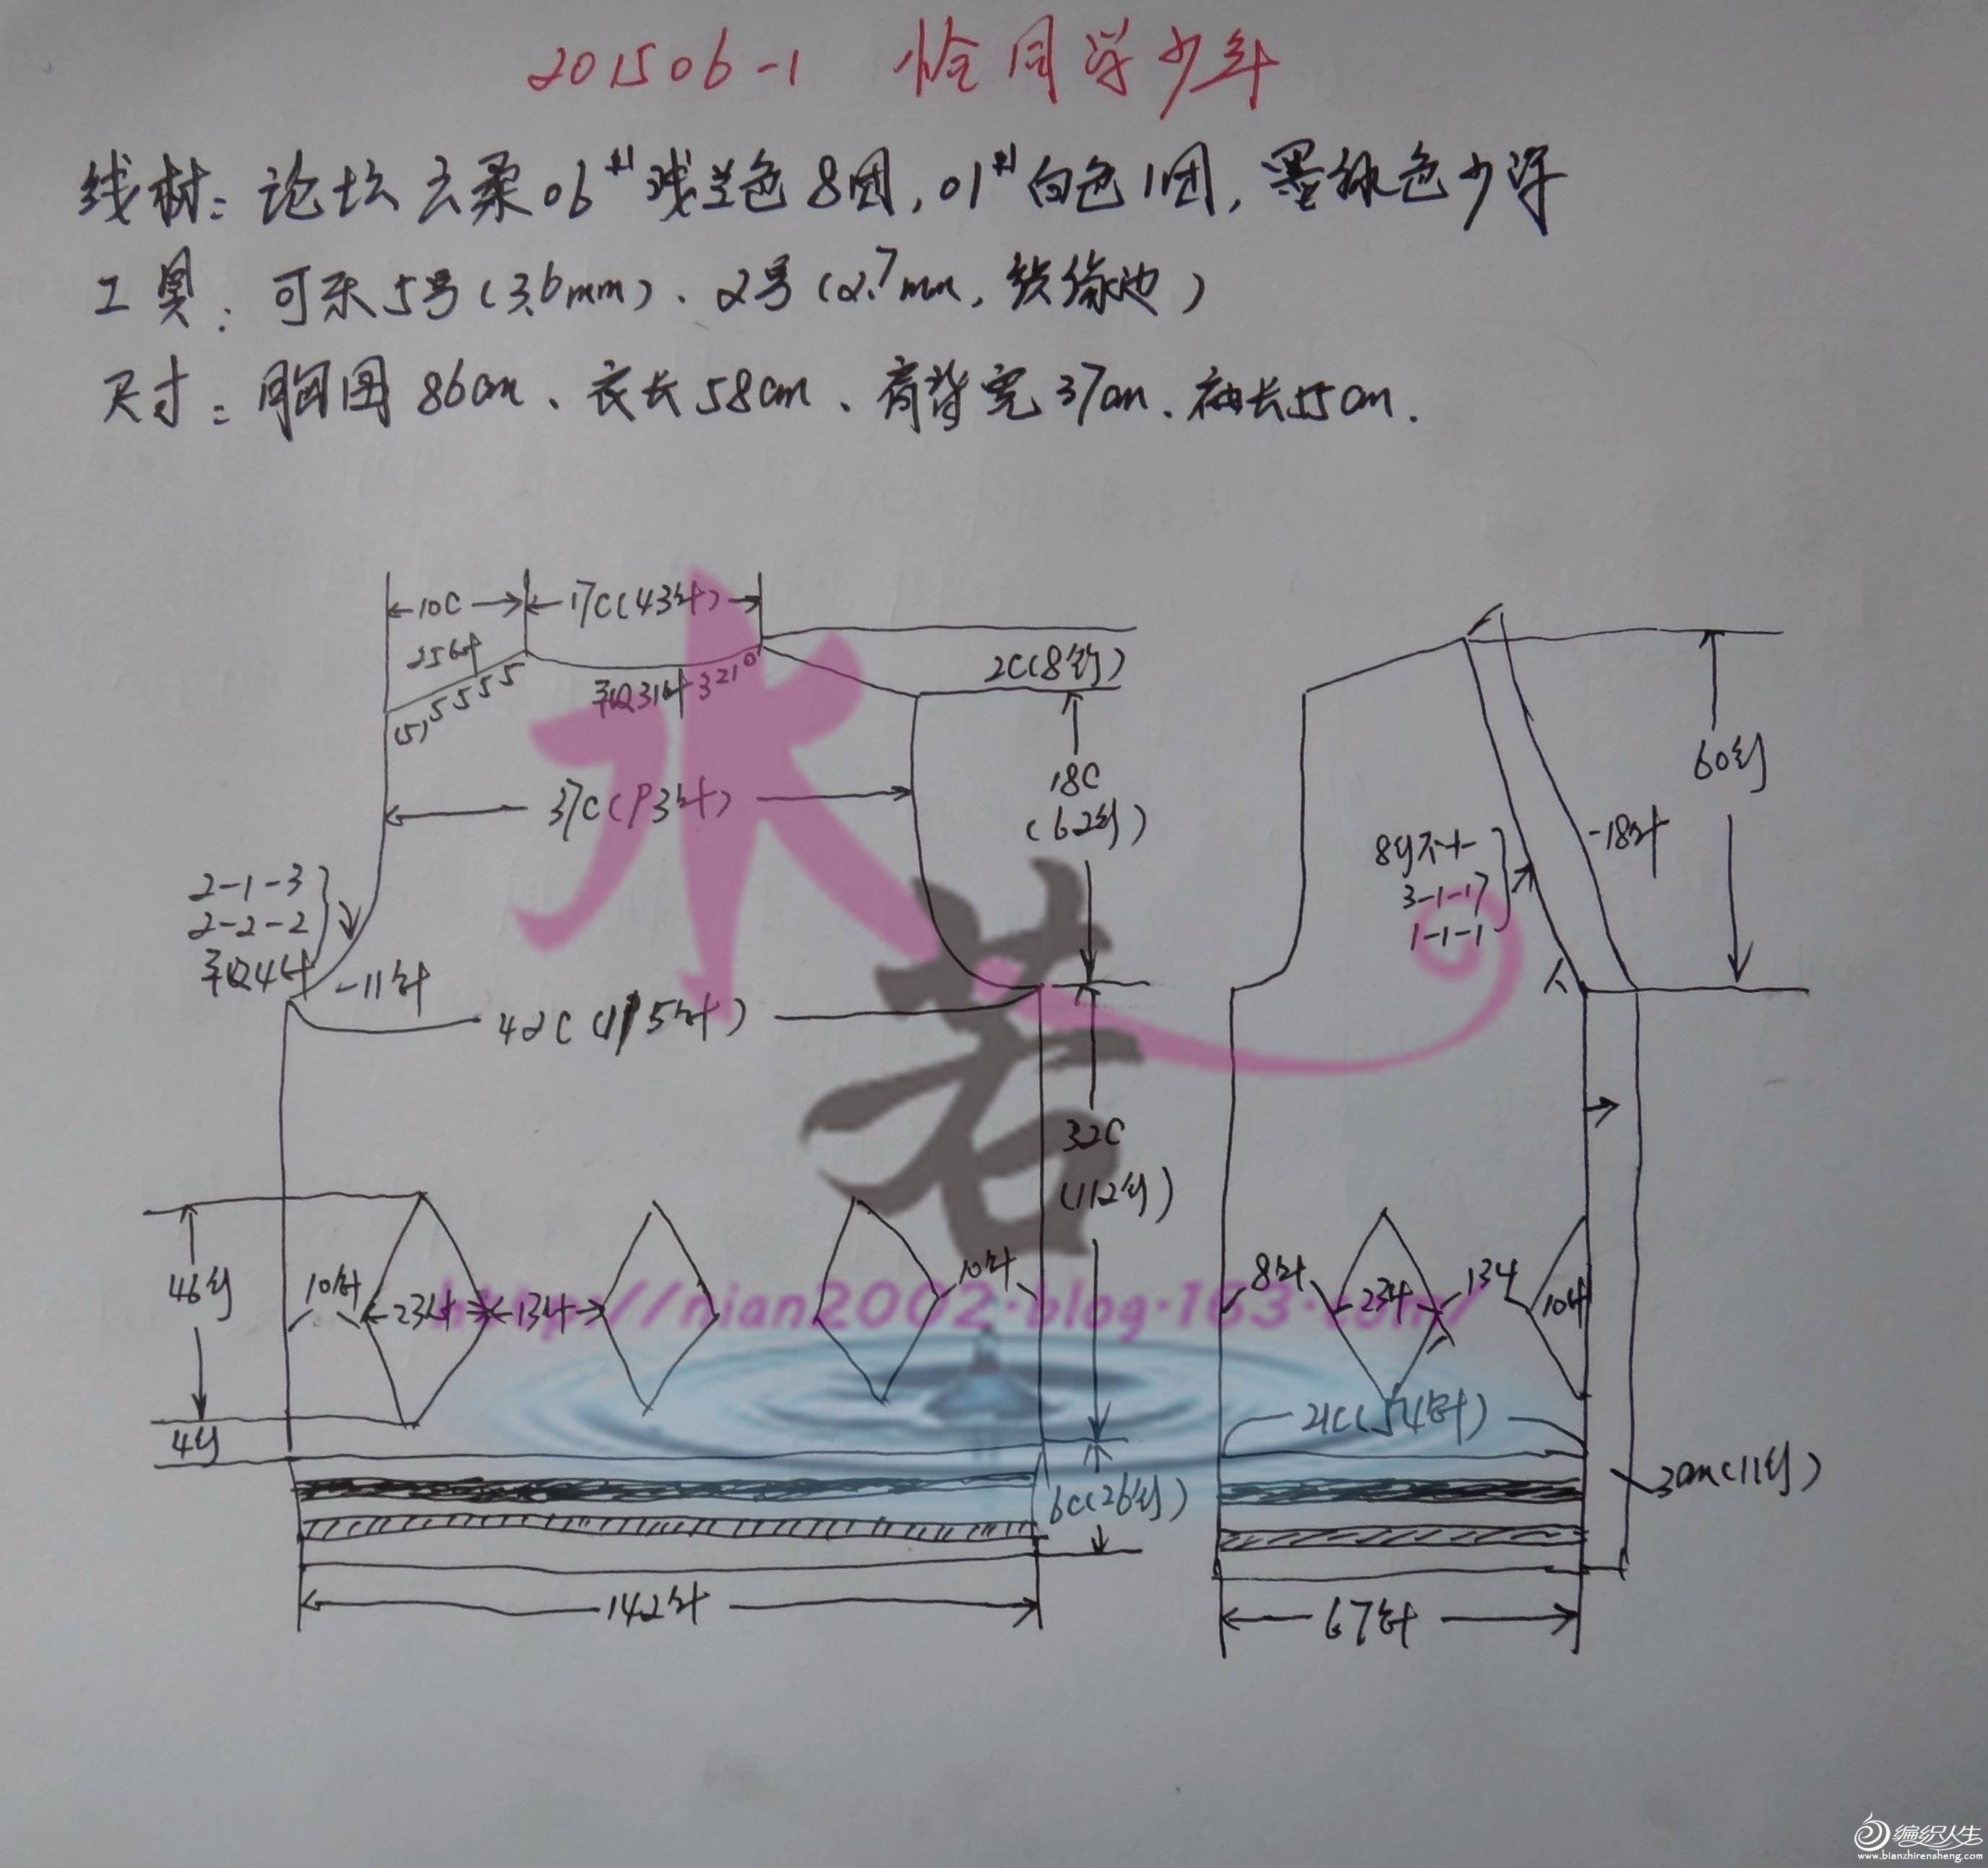 201506-1 恰同学少年
线材：论坛云柔06#浅兰色8团，01#白色1团，墨绿色少许
工具：可乐5号（3.6mm）、2号（2.7mm，织缘边）
尺寸：胸围86cm、衣长58cm、肩背宽37cm、袖长55cm.
10C
17C(43针)
25针
5 5 5 5
(5)
平收31针 3 2 1 0
2C(8行)
18C
(62行)
37C(93针)
2-1-3
2-2-2
平收4针
-11针
42C(115针)
32C
(112行)
46行
10针
23针
13针
10针
4行
6C(26行)
142针
60行
-18针
8行不十
3-1-17
1-1-1
人
8针
23针
13针
10针
21C(54针)
3cm(11行)
67针
水若
http://nian2002.blog.163.com/
编织人生
www.bianzhirensheng.com